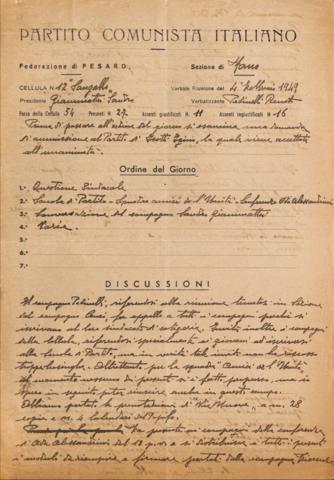 PARTITO COMUNISTA ITALIANO
Federazione di PESARO. Sezione di Fano
CELLULA N. 12 Verbale Riunione del 4 Febbraio 1949
Presidente Giammattei Sandro Verbalizzante Petinelli Renato
Forza della Cellula 54 Presenti N. 27 Assenti giustificati N. 11 Assenti ingiustificati N. 16
Prima di passare all'ordine del giorno si esamina una domanda
di ammissione al Partito di la quale viene accettata
all'unanimità.
Ordine del Giorno
1.° Questione Sindacale
2.° Scuola di Partito - amici de l'Unità - Conferenza Ada Alessandrini
3.° Conversazione del compagno Sandro Giammattei
4.° Varie.
5.°
6.°
7.°
DISCUSSIONI
Il compagno Petinelli, riferendosi alla riunione tenutasi in Sezione
dal compagno fa appello a tutti i compagni perchè si
iscrivano al loro sindacato di categoria. Invita inoltre i compagni
della Cellula, riferendosi specialmente ai giovani ad iscriversi
alla Scuola di Partito, ma in verità tale invito non ha riscosso
troppo Addirittura, per la squadra "Amici de l'Unità"
al momento nessuno dei presenti si è fatto proposto, ma si
spera in seguito poter riuscire anche in questo campo.
Abbiamo portato la prenotazione di Vie Nuove, a n. 28
copie e n. 4 Calendari del Popolo.
ai compagni della conferenza
di Ada Alessandrini del 12 p.v. e si distribuisce a tutti i presenti
i moduli da riempire e firmare portati dalla compagna